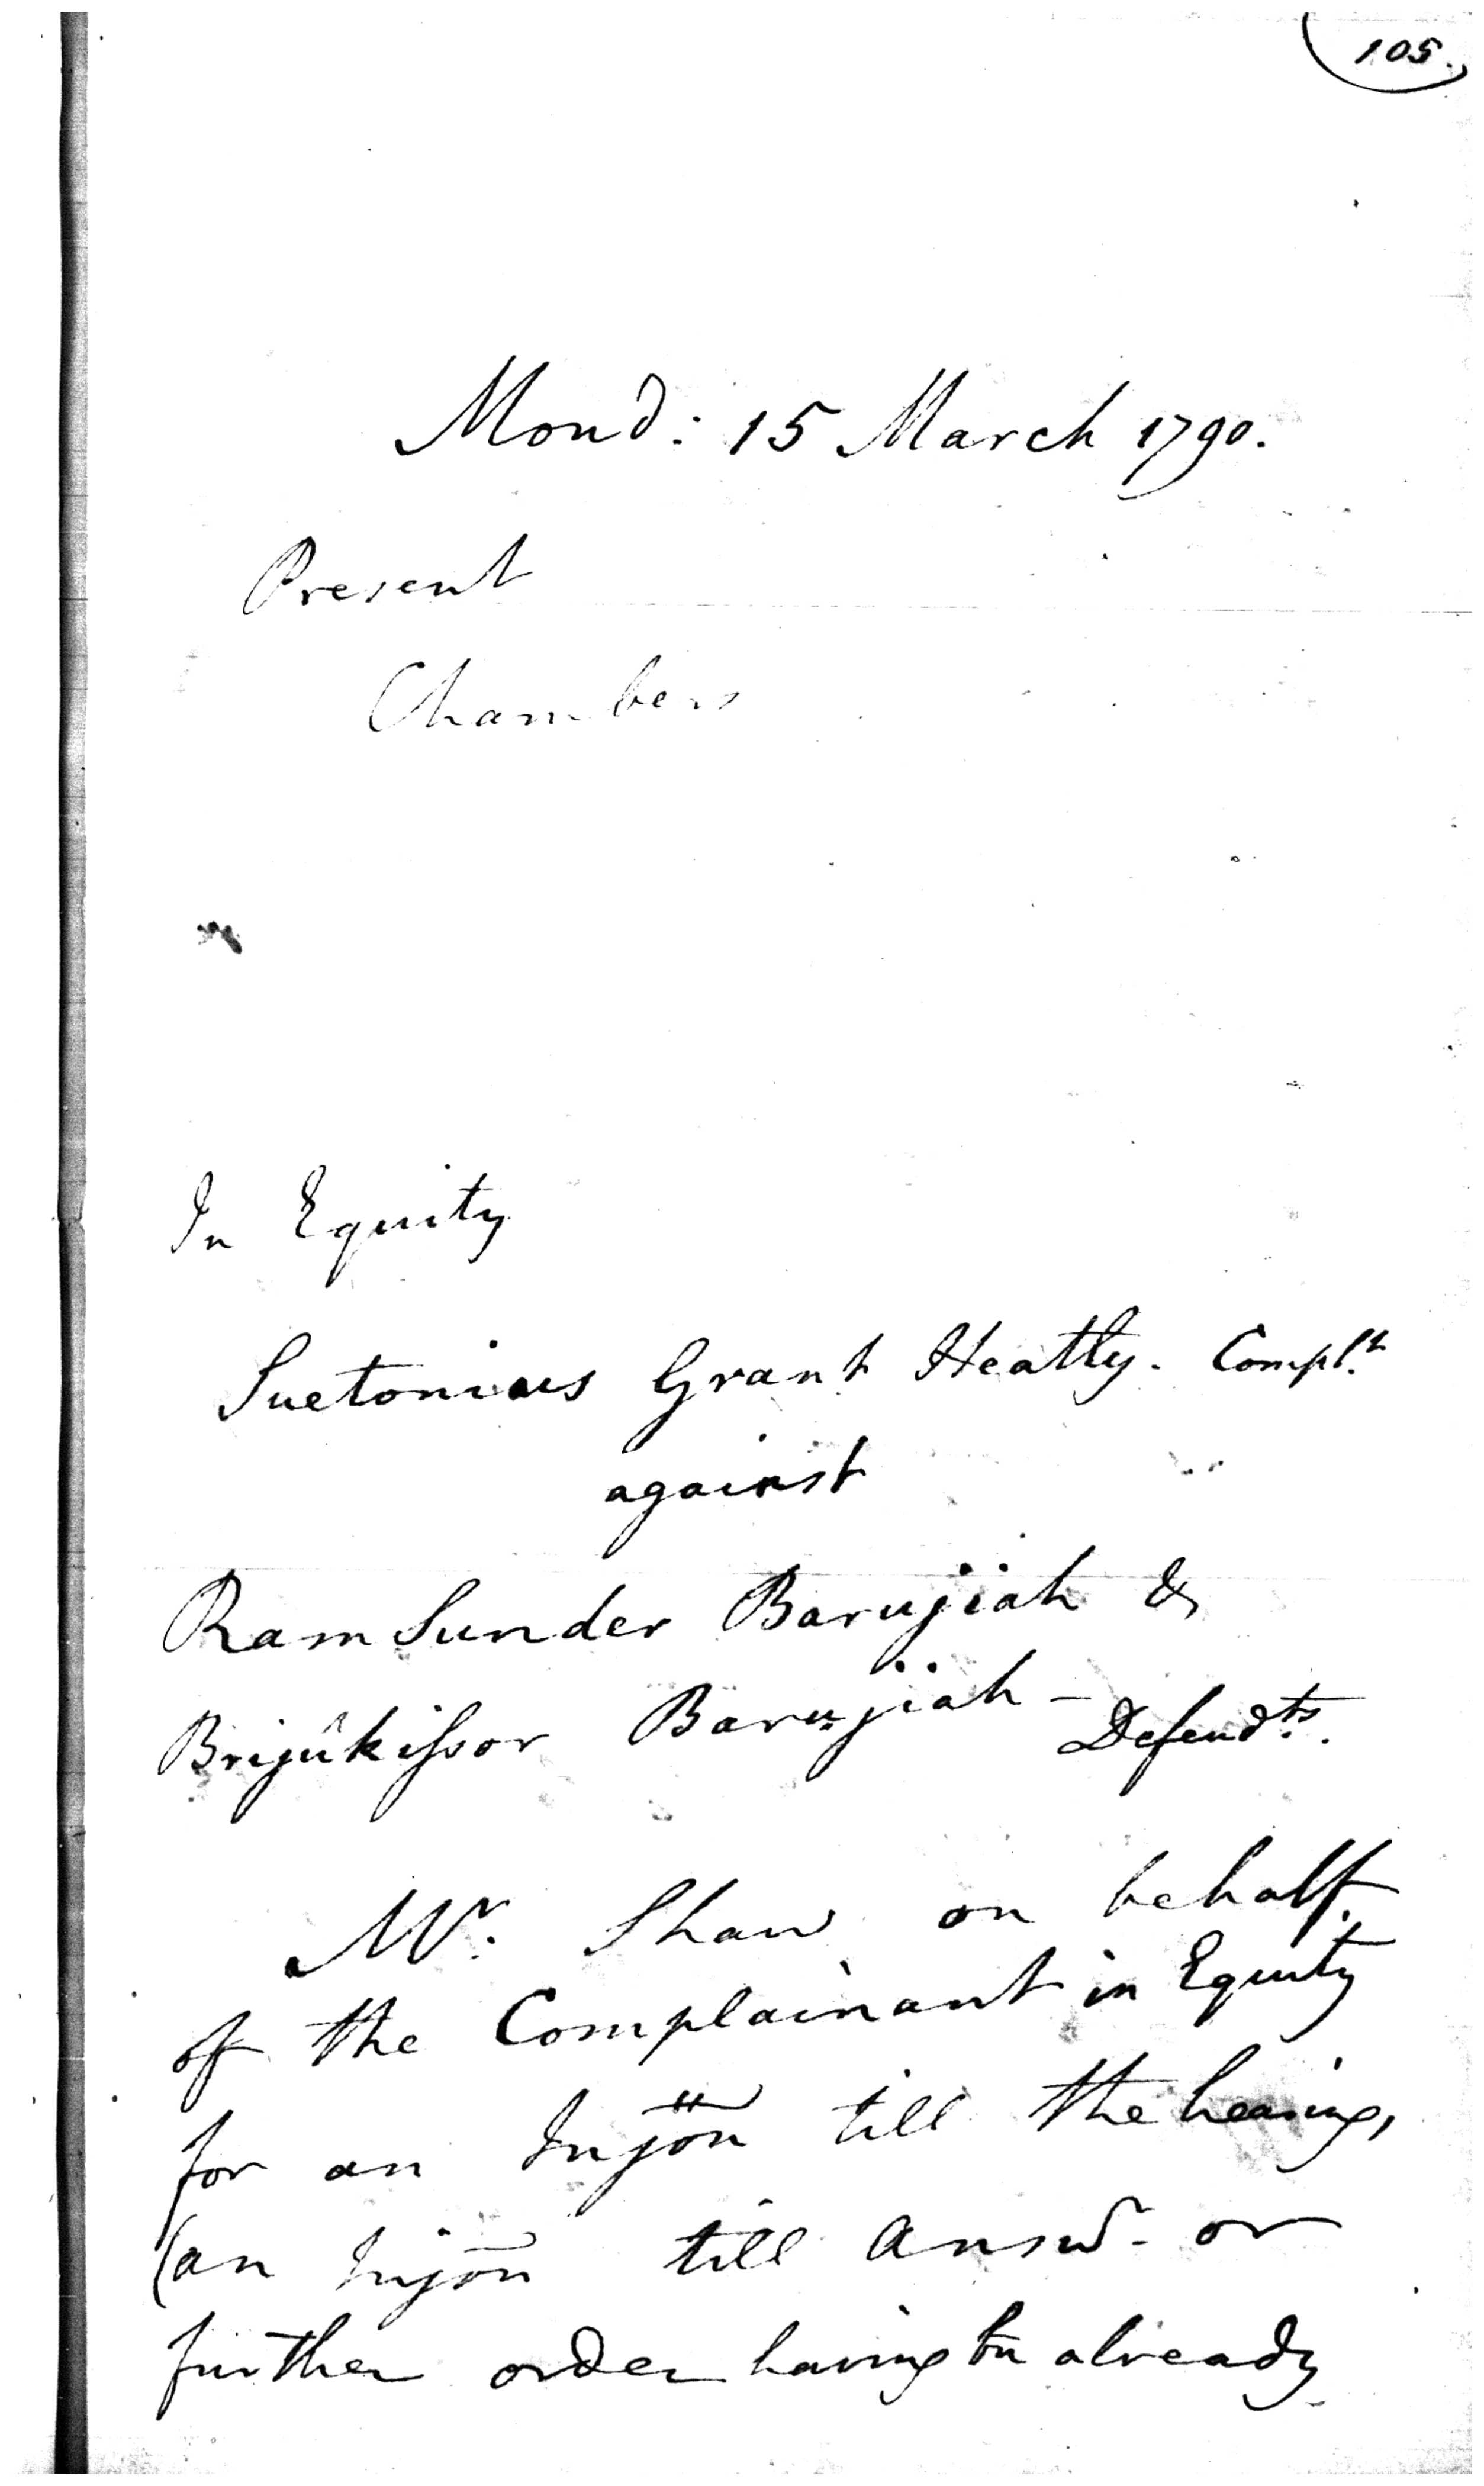 105.
Mond: 15 March 1790.
Present
Chambers
In Equity
Suetonius Grant Heatly. Complt.
against
Ram Sunder Barujiah &
Brijûkissor Barujiah - Defendts.
Mr. Shaw on behalf
of the Complainant in Equity
for an Injon till the hearing,
(an Injon till Answr. or
further order having bn already